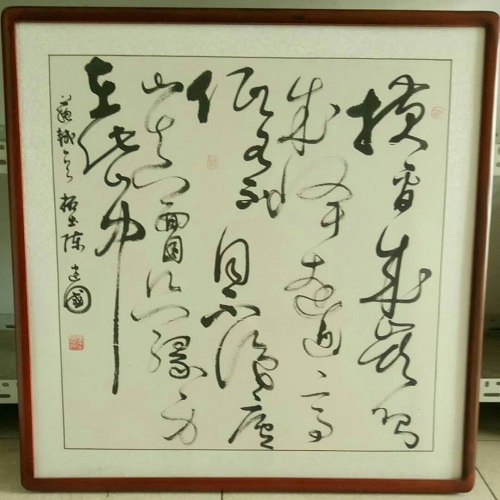 横看成岭侧
成峰远近高
低各不同不识庐
山真面目只缘身
在此山中
苏轼 陈建国